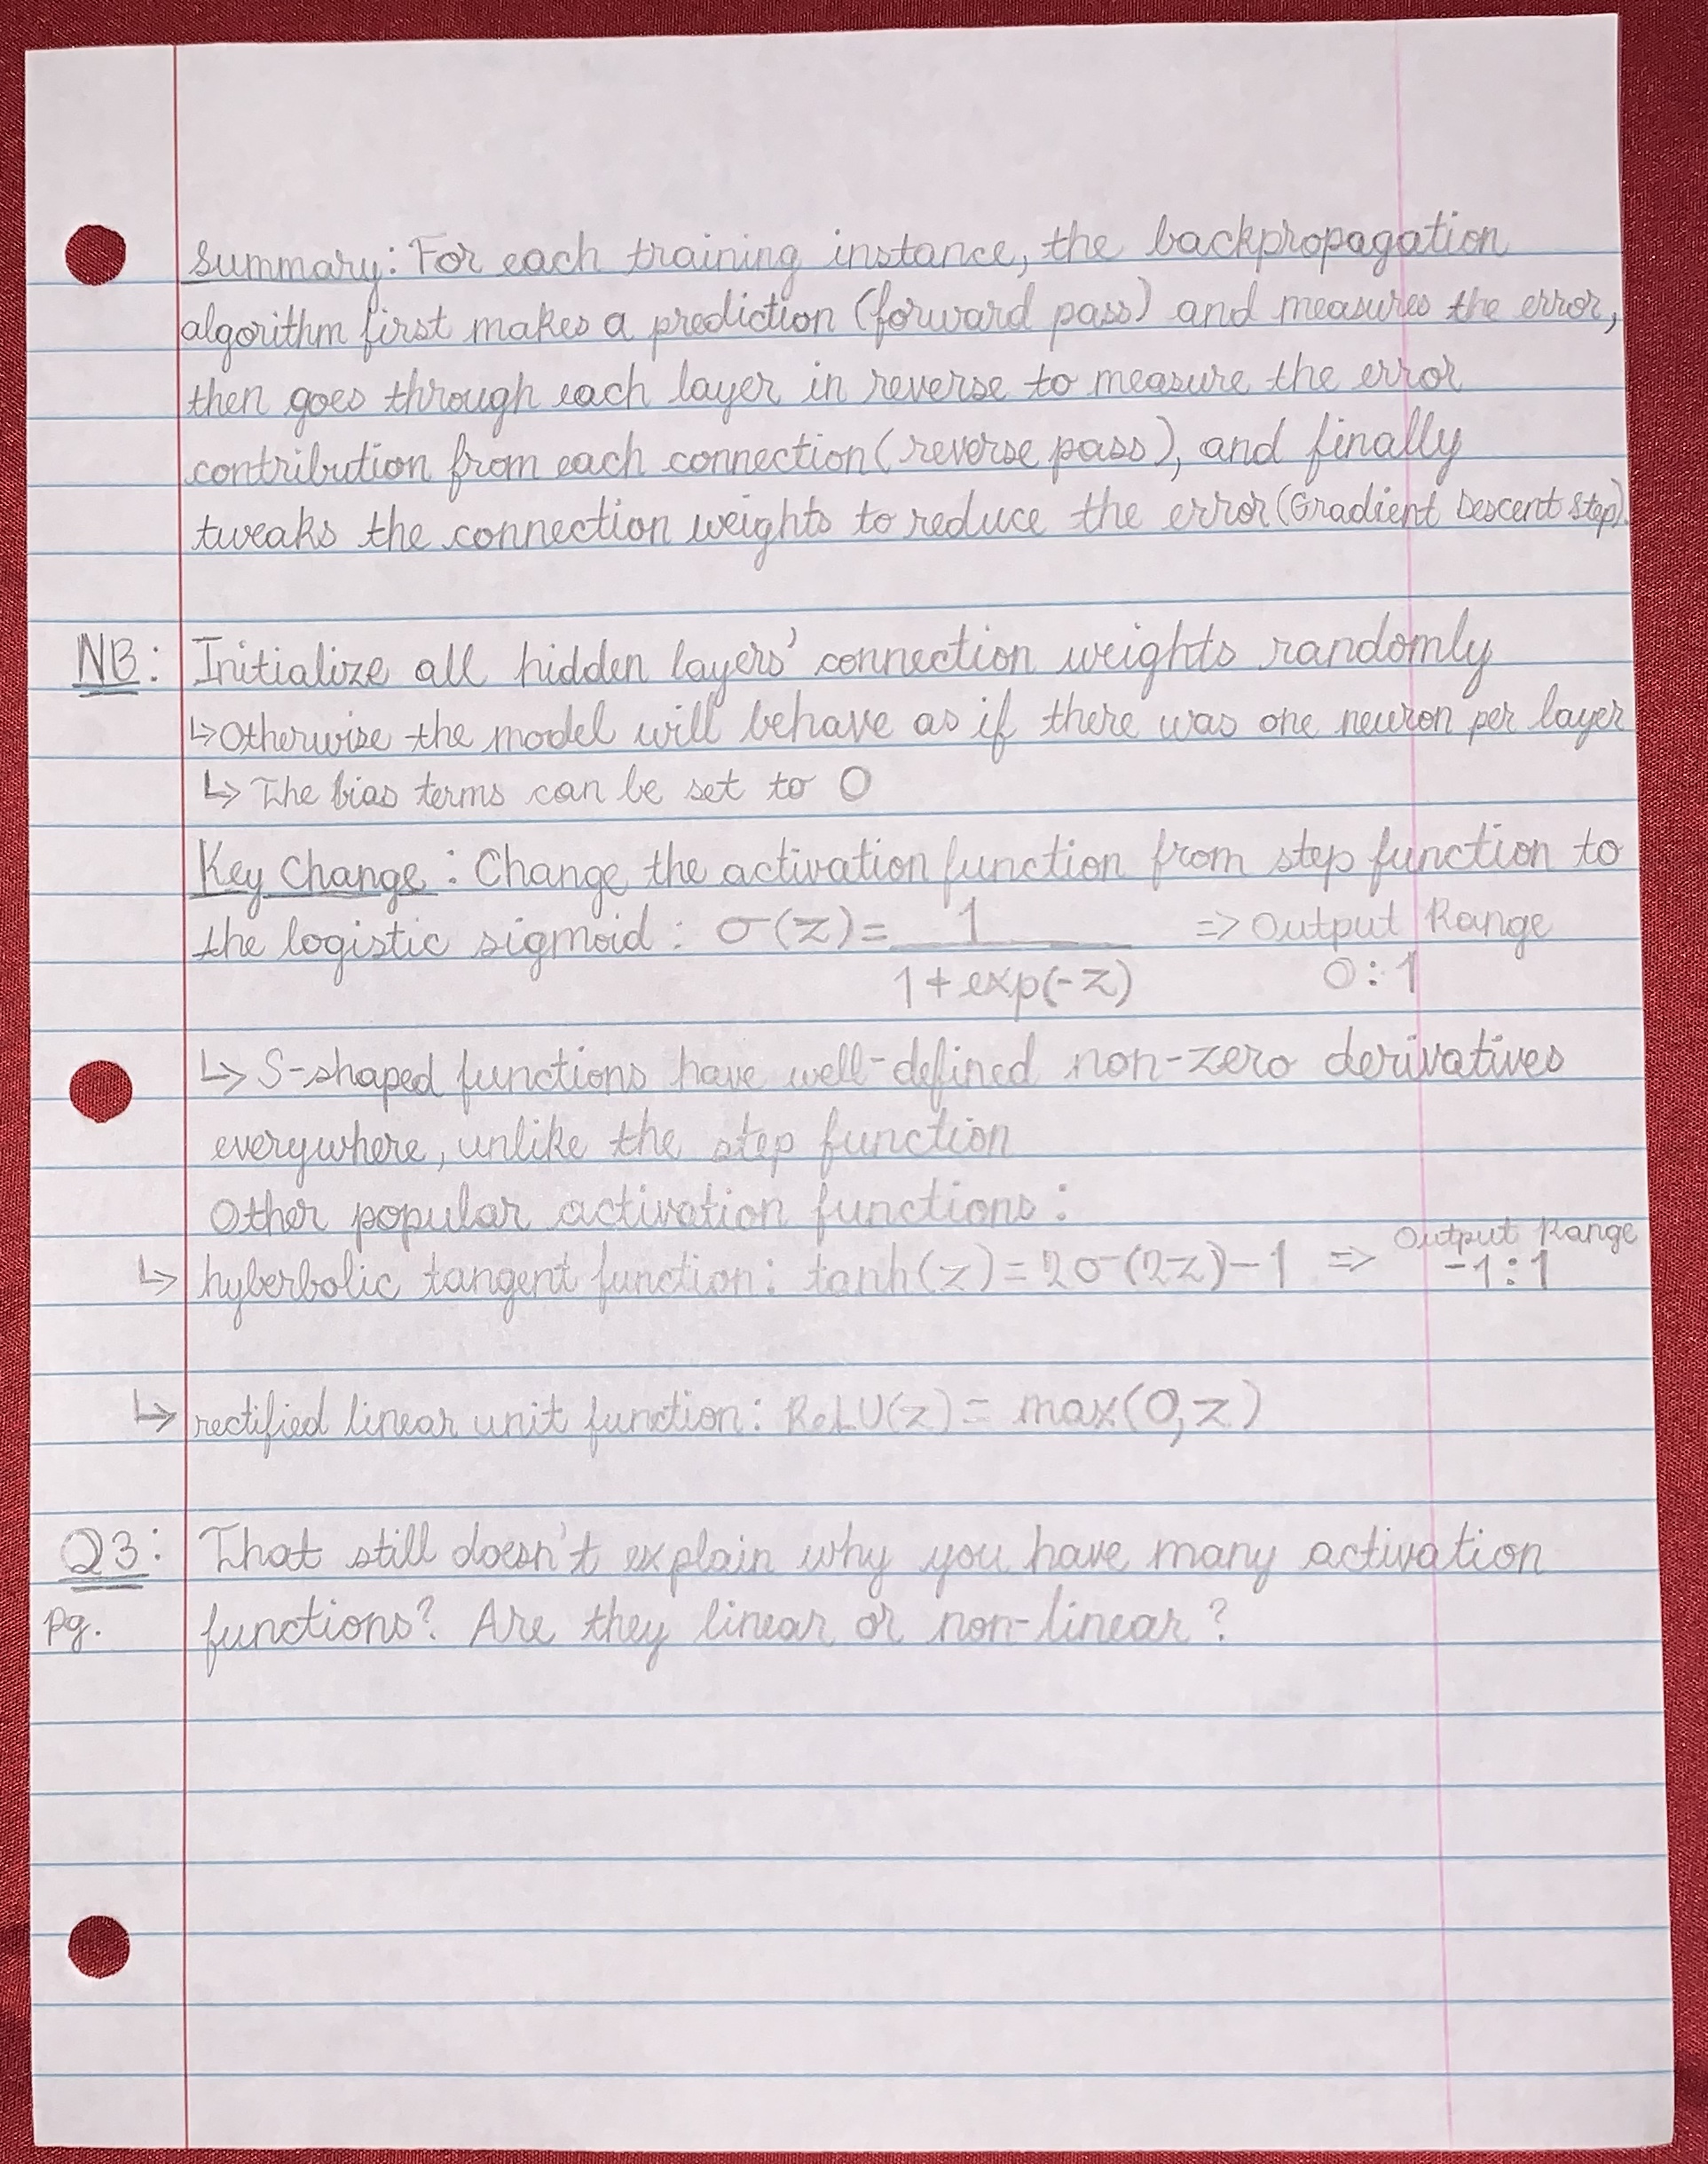 Summary: For each training instance, the backpropagation
algorithm first makes a prediction (forward pass) and measures the error,
then goes through each layer in reverse to measure the error
contribution from each connection (reverse pass), and finally
tweaks the connection weights to reduce the error (Gradient Descent Step).
NB: Initialize all hidden layers' connection weights randomly
↳ Otherwise the model will behave as if there was one neuron per layer
↳ The bias terms can be set to 0
Key Change: Change the activation function from step function to
the logistic sigmoid: σ(z) = 1 => Output Range
1 + exp(-z) 0:1
↳ S-shaped functions have well-defined non-zero derivatives
everywhere, unlike the step function
Other popular activation functions:
↳ hyberbolic tangent function: tanh(z) = 2σ(2z) - 1 => Output Range
-1:1
↳ rectified linear unit function: ReLU(z) = max(0,z)
Q3: That still doesn't explain why you have many activation
pg. functions? Are they linear or non-linear?